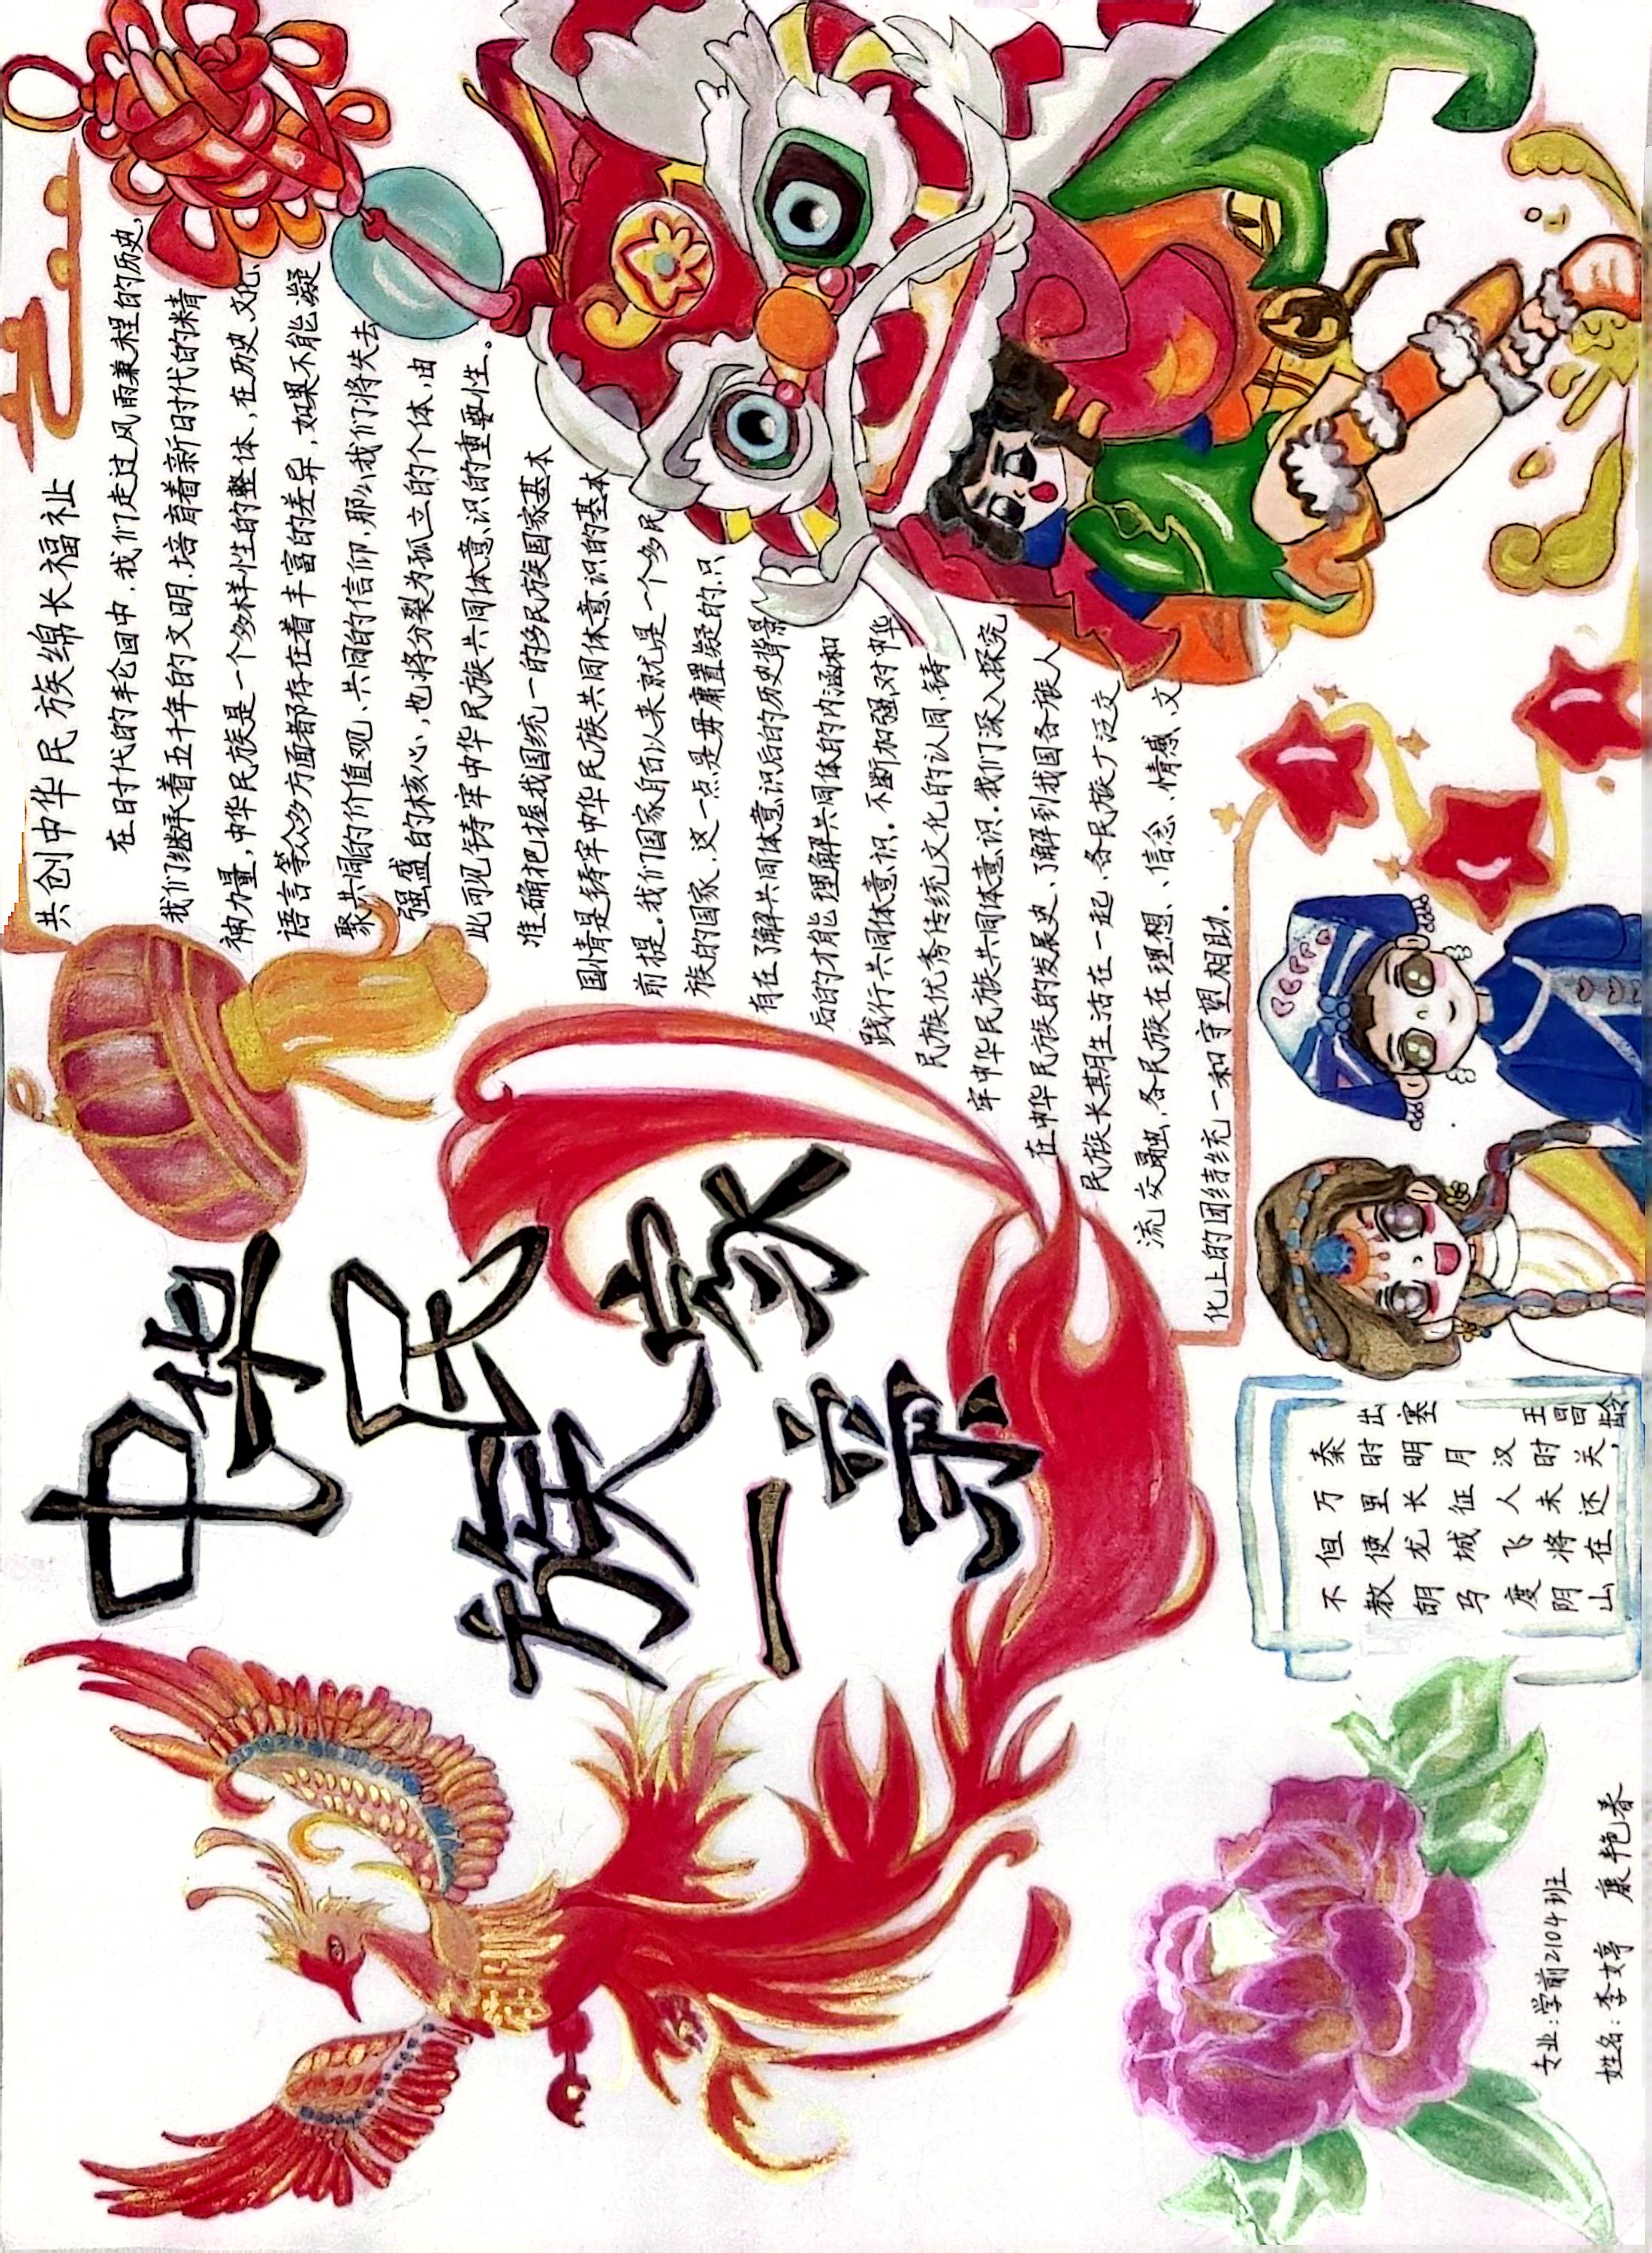 中华民族一家亲
共创中华民族绵长福祉
在时代的年轮回中，我们走过风雨兼程的历史，
我们继承着五千年的文明，培育着新时代的精
神力量，中华民族是一个多样性的整体，在历史、文化、
语言等众多方面都存在着丰富的差异，如果不能凝
聚共同的价值观、共同的信仰，那么我们将失去
强盛的核心，也将分裂为孤立的个体，由
此可见铸牢中华民族共同体意识的重要性。
准确把握我国统一的多民族国家基本
国情是铸牢中华民族共同体意识的基本
前提。我们国家自古以来就是一个多民
族的国家，这一点是毋庸置疑的，只
有在了解共同体意识后的历史背景
后的才能理解共同体的内涵和
践行共同体意识。不断加强对中华
民族优秀传统文化的认同，铸
牢中华民族共同体意识。我们深入探究
在中华民族的发展史、了解到我国各族人
民族长期生活在一起、各民族广泛交
流交融，各民族在理想、信念、情感、文
化上的团结统一和守望相助。
出塞
王昌龄
秦时明月汉时关，
万里长征人未还
但使龙城飞将在
不教胡马度阴山
专业：学前2104班
姓名：李文婷 康艳春